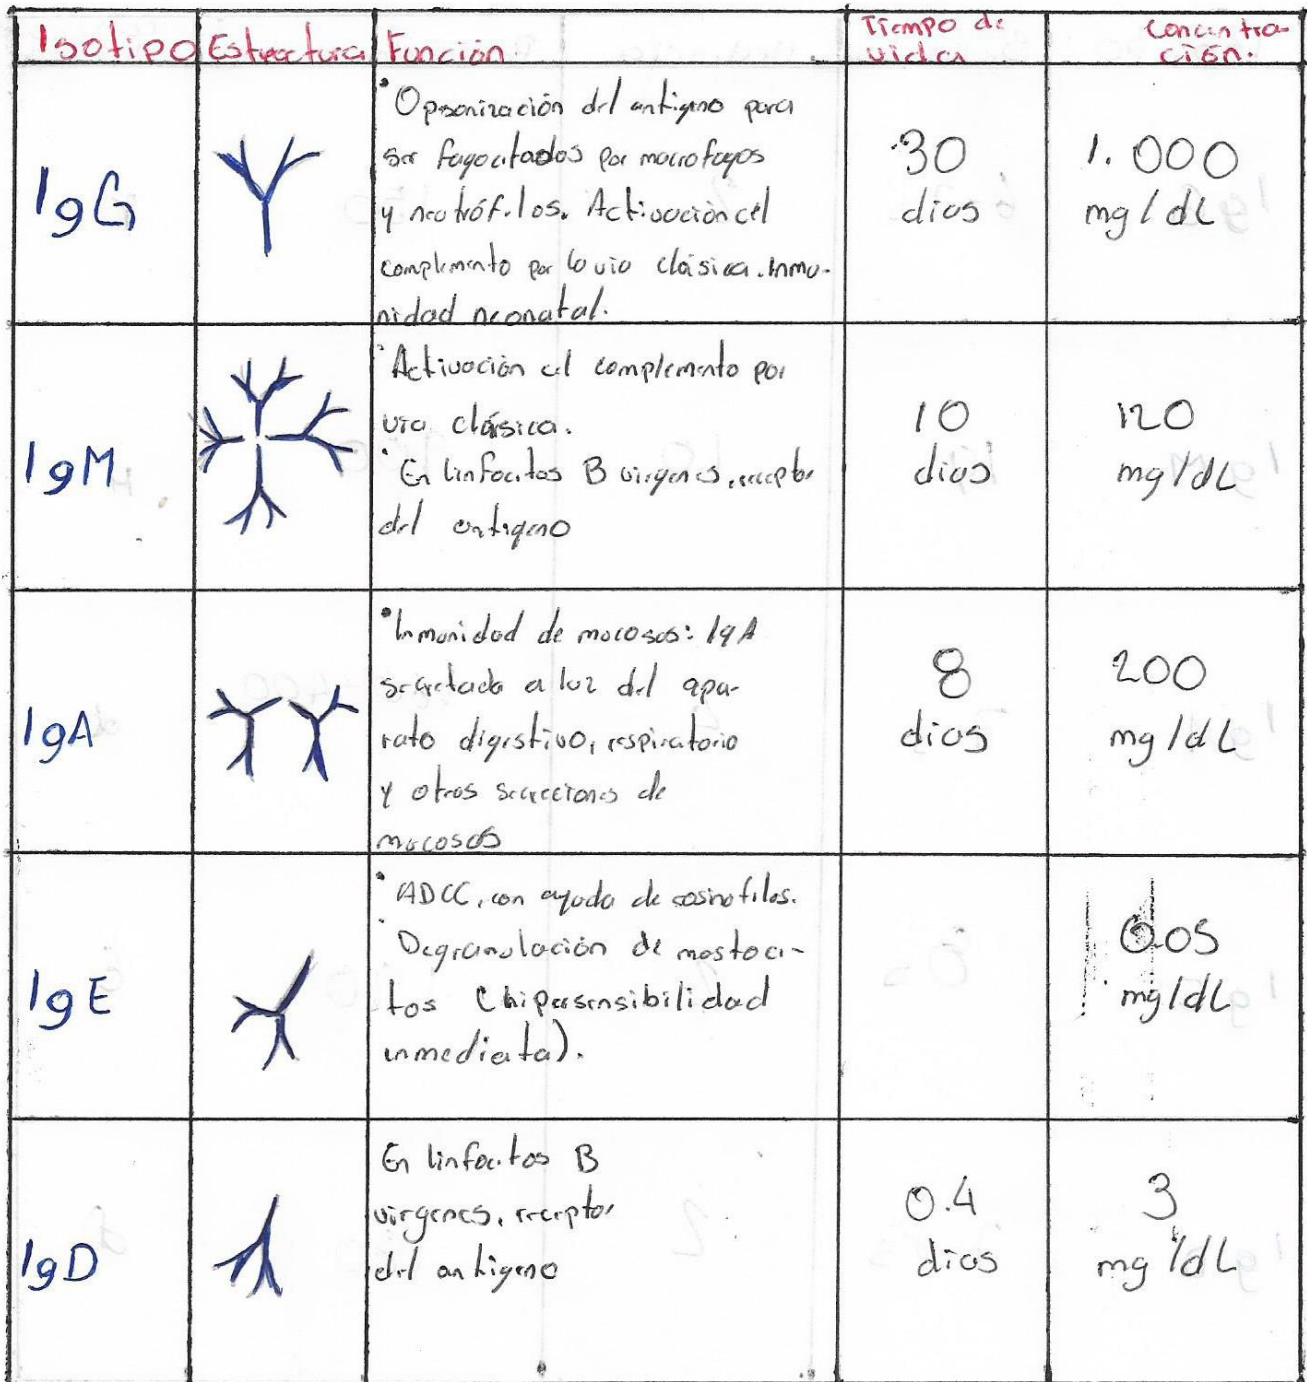 Isotipo Estructura Función Tiempo de vida Concentra-
ción.
IgG
• Opsonización del antígeno para
ser fagocitados por macrofagos
y neutrófilos. Activación del
complemento por la via clásica. Inmu-
nidad neonatal.
30
dias
1.000
mg/dL
IgM
• Activación del complemento por
via clásica.
• En linfocitos B virgenes, receptor
del antigeno
10
dias
120
mg/dL
IgA
• Inmunidad de mucosas: IgA
secretada a luz del apa-
rato digestivo, respiratorio
y otras secreciones de
mucosas
8
dias
200
mg/dL
IgE
• ADCC, con ayuda de eosinofilos.
• Degranulación de mastoci-
tos (hipersensibilidad
inmediata).
0.05
mg/dL
IgD
En linfocitos B
virgenes, receptor
del antigeno
0.4
dias
3
mg/dL